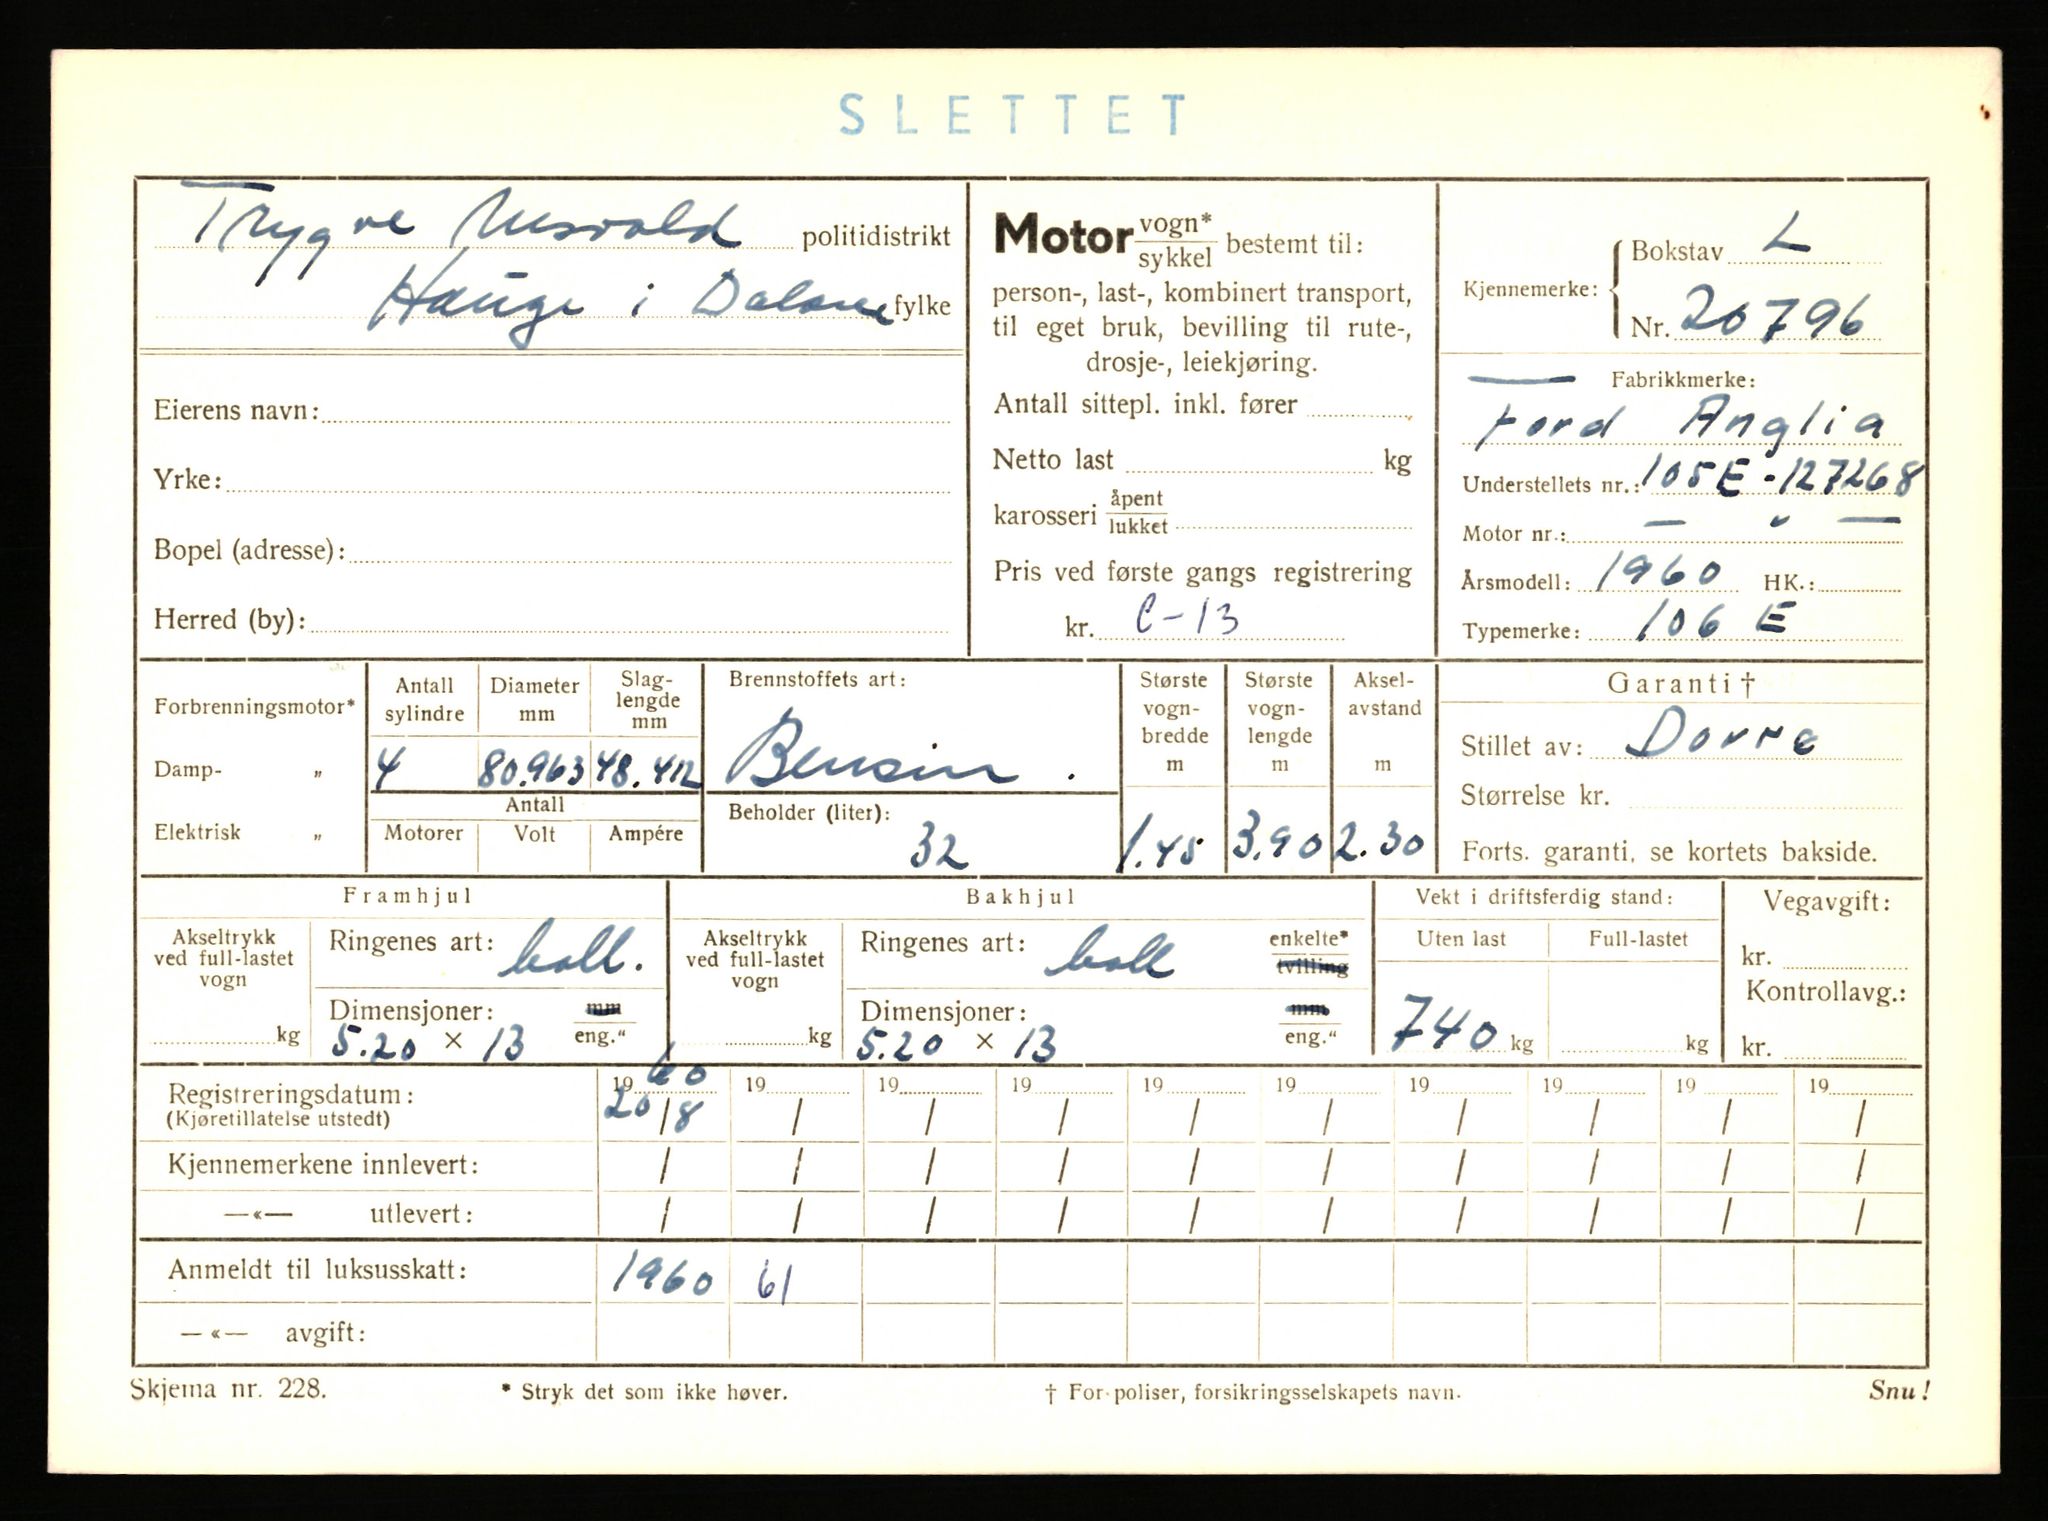 SLETTET
Trygve politidistrikt
Hauge i Dalane fylke
Eierens navn:
Yrke:
Bopel (adresse):
Herred (by):
Motor vogn* / sykkel bestemt til:
person-, last-, kombinert transport,
til eget bruk, bevilling til rute-,
drosje-, leiekjøring.
Antall sittepl. inkl. fører
Netto last kg
karosseri åpent / lukket
Pris ved første gangs registrering
kr. C-13
Kjennemerke: Bokstav L
Nr. 20796
Fabrikkmerke:
Ford Anglia
Understellets nr.: 105E-127268
Motor nr.: — " —
Årsmodell: 1960 HK.:
Typemerke: 106 E
Forbrenningsmotor*
Damp- "
Elektrisk "
Antall sylindre
4
Diameter mm
80.963
Slag-lengde mm
48.412
Antall
Motorer Volt Ampére
Brennstoffets art:
Bensin.
Beholder (liter):
32
Største vogn-bredde m
1.45
Største vogn-lengde m
3.90
Aksel-avstand m
2.30
Garanti †
Stillet av: Dovre
Størrelse kr.
Forts. garanti, se kortets bakside.
Framhjul
Akseltrykk
ved full-lastet
vogn
kg
Ringenes art: ball.
Dimensjoner: mm / eng."
5.20 × 13
Bakhjul
Akseltrykk
ved full-lastet
vogn
kg
Ringenes art: ball enkelte* / tvilling
Dimensjoner: mm / eng."
5.20 × 13
Vekt i driftsferdig stand:
Uten last Full-lastet
740 kg kg
Vegavgift:
kr.
Kontrollavg.:
kr.
Registreringsdatum: 1960 19 19 19 19 19 19 19 19 19
(Kjøretillatelse utstedt) 20/8 / / / / / / / / /
Kjennemerkene innlevert: / / / / / / / / / /
—«— utlevert: / / / / / / / / / /
Anmeldt til luksusskatt: 1960 61
—«— avgift:
Skjema nr. 228. * Stryk det som ikke høver. † For poliser, forsikringsselskapets navn. Snu!